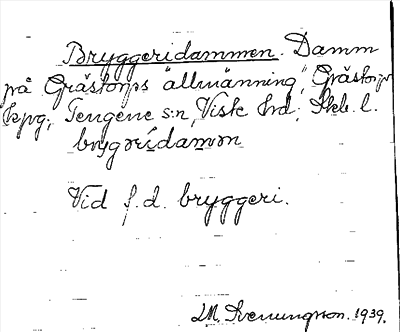 Bryggeridammen. Damm
på Grästorps "allmänning", Grästorps
kpg; Tengene s:n, Viste hd; Skb. l.
bryggerídamm
Vid f. d. bryggeri.
LM. Svenungsson. 1939.